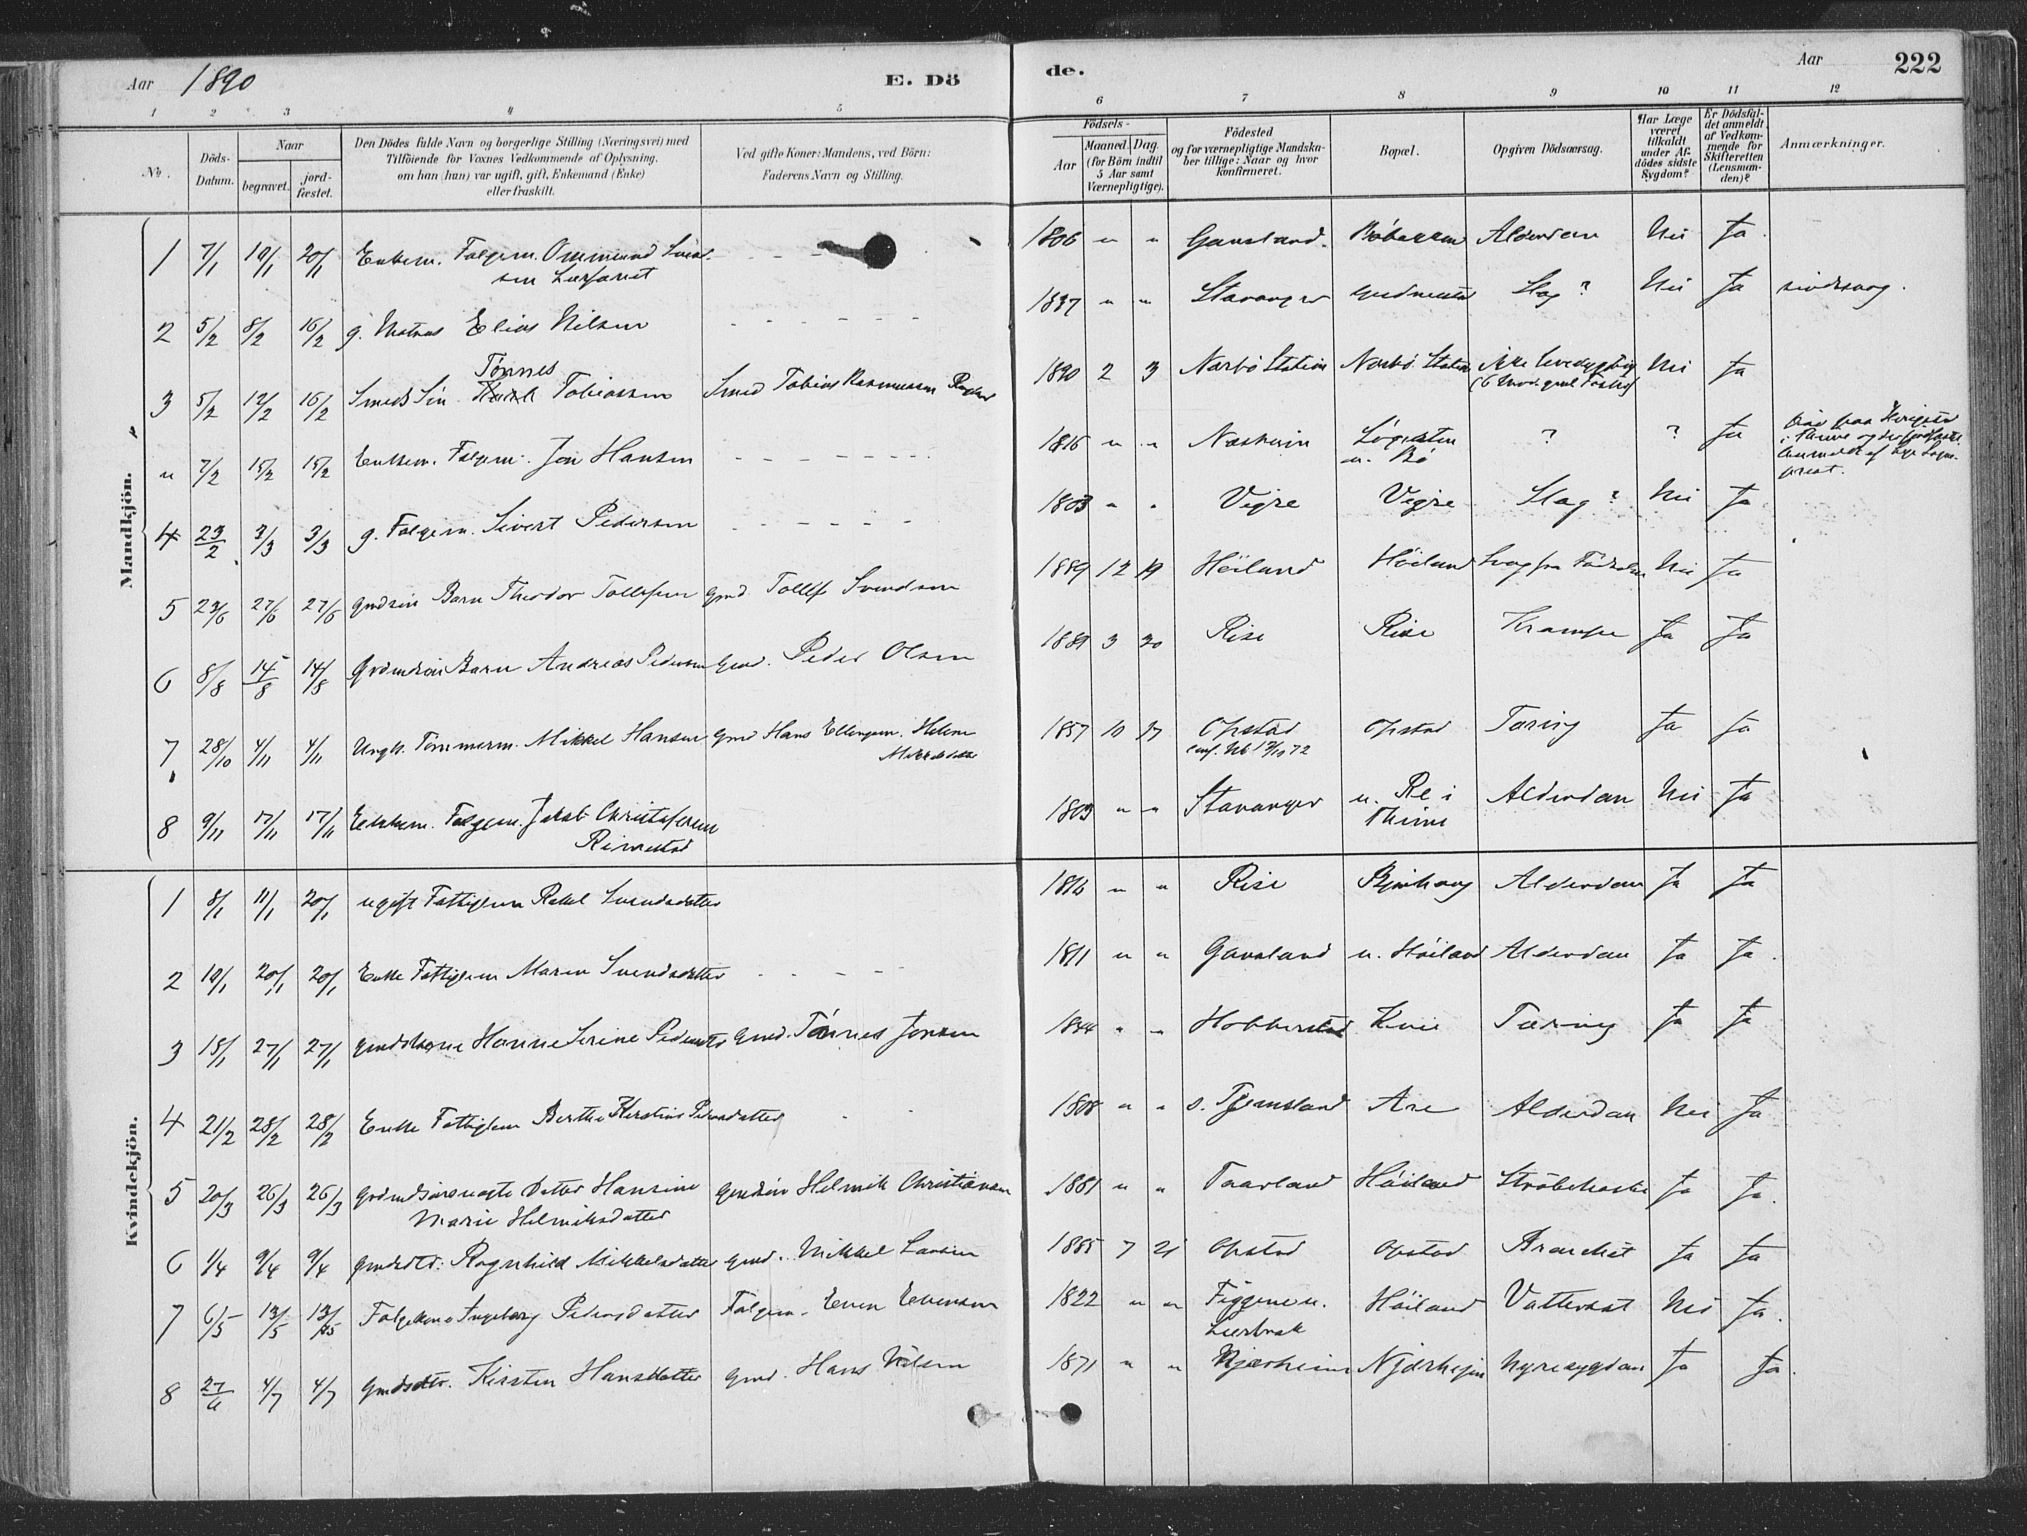 Aar 1890 E. Dö
de. Aar 222
1 2 3 4 5 6 7 8 9 10 11 12
No. Döds-Datum. Naar begravet. jordfæstet. Den Dödes fulde Navn og borgerlige Stilling (Næringsvei) med Tilföiende for Voxnes Vedkommende af Oplysning, om han (hun) var ugift, gift, Enkemand (Enke) eller fraskilt. Ved gifte Koner: Mandens, ved Börn: Faderens Navn og Stilling.
Födsels- Aar Maaned. Dag. (for Börn indtil 5 Aar samt Værnepligtige). Födested og for værnepligtige Mandskaber tillige: Naar og hvor konfirmeret. Bopæl. Opgiven Dödsaarsag. Har Læge været tilkaldt under Afdödes sidste Sygdom? Er Dödsfaldet anmeldt af Vedkommende for Skifteretten (Lensmanden)? Anmærkninger.
Mandkjön.
1 7/1 19/1 20/1 Enkem. Folgem. Ommund 1806 " " Gausland. Alderdom Nei Ja
2 5/2 8/2 16/2 g. Matros Elias Nilsen 1837 " " Stavanger Slag? Nei Ja sindssvag.
3 5/2 12/2 16/2 Smeds Sön Tönnes Tobiassen Smed Tobias Rasmussen 1890 2 3 Nærbö Station Nærbö Station Nei Ja
" 7/2 15/2 15/2 Enkem. Folgem. Jon Hansen 1816 " " u. Bö ? ? Ja
4 23/2 3/3 3/3 g. Folgem. Sivert Pedersen 1803 " " Vigre Vigre Slag? Nei Ja
5 23/6 27/6 27/6 Barn Theodor Tollefsen Gmd. Tollef Svendsen 1889 12 19 Höiland Höiland Svag fra Födselen Nei Ja
6 8/8 14/8 14/8 Barn Andreas Pedersen Gmd. Peder Olsen 1889 3 30 Rise Rise Krampe Ja Ja
7 28/10 4/11 4/11 Ungk. Tömmerm. Mikkel Hansen Gmd Hans Ellingsen. Helene 1857 10 17 Opstad Opstad Tæring Ja Ja
8 9/11 17/11 17/11 Enkem. Folgem. Jakob Christofersen Rimestad 1803 " " Stavanger u. Re i Thime Alderdom Nei Ja
Kvindekjön.
1 8/1 11/1 20/1 ugift Fattiglem Rakel Svendsdatter 1816 " " Rise Alderdom Ja Ja
2 19/1 20/1 20/1 Enke Fattiglem Maren Svendsdatter 1811 " " Gausland u. Höiland Alderdom Ja Ja.
3 18/1 27/1 27/1 Hanne Serine Gmd. Tönnes Jonsen 1844 " " Hobberstad Kvie Tæring Ja Ja
4 21/2 28/2 28/2 Enke Fattiglem Berthe Kerstine Pedersdatter 1808 " " s. Tjemsland Are Alderdom Nei Ja
5 20/3 26/3 26/3 Datter Hansine Marie Helmiksdatter Helmik Christiansen 1881 " " Taarland Höiland Strubehoste Ja Ja.
6 1/4 9/4 9/4 Gmdsdtr. Ragnhild Mikkelsdatter Gmd. Mikkel Larsen 1885 7 21 Opstad Opstad Ja Ja
7 6/5 13/5 13/5 Ingeborg Pedersdatter Folgem. Even Evensen 1822 " " Höiland Vattersot Nei Ja.
8 27/6 4/7 4/7 Gmdsdtr. Kirsten Hansdatter Gmd. Hans Nilsen 1871 " " Njærheim Njærheim Nyresygdom Ja Ja.